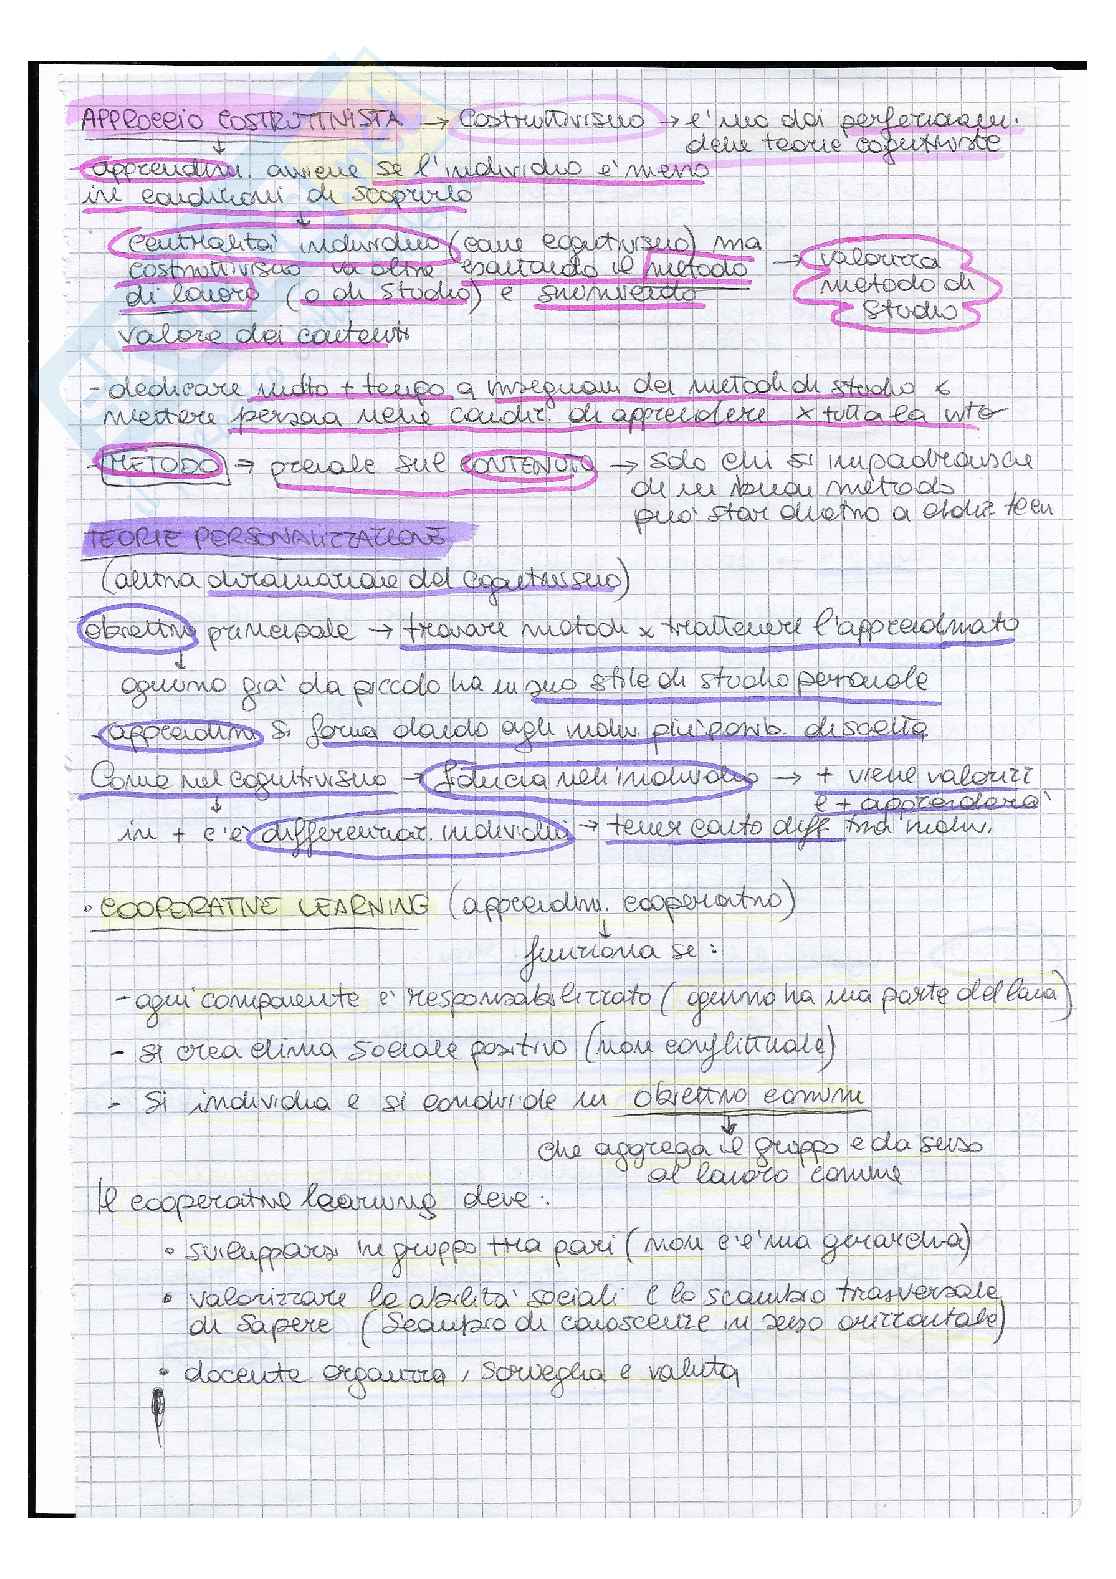 APPROCCIO COSTRUTTIVISTA → Costruttivismo → è uno dei perfezionam.
delle teorie cognitiviste
- apprendim. avviene se l'individuo è messo
in condizioni di scoprirlo
centralità individuo (come cognitivismo) ma
costruttivismo va oltre esaltando il metodo → valorizza
di lavoro (o di studio) e smimuendo metodo di
valore dei contenuti studio
- dedicare molto + tempo a insegnam dei metodi di studio e
mettere persona nelle condiz. di apprendere x tutta la vita
- METODO → prevale sul CONTENUTO → solo chi si impadronisce
di un buon metodo
può star dietro a
TEORIE PERSONALIZZAZIONE
(altra diramazione del cognitivismo)
obiettivo principale → trovare metodi x trattenere l'apprendimento
ognuno già da piccolo ha un suo stile di studio personale
- apprendim. si forma dando agli indiv. più possib. di scelta
Come nel cognitivismo → fiducia nell'individuo → + viene valorizz
e + apprenderà
in + c'è differenziaz. individui → tener conto diff. tra indiv.
· COOPERATIVE LEARNING (apprendim. cooperativo)
funziona se:
- ogni componente è responsabilizzato (ognuno ha una parte del lavoro)
- si crea clima sociale positivo (non conflittuale)
- Si individua e si condivide un obiettivo comune
che aggrega il gruppo e dà senso
al lavoro comune
Il cooperative learning deve:
• svilupparsi in gruppo tra pari (non c'è una gerarchia)
• valorizzare le abilità sociali e lo scambio trasversale
di sapere (Scambio di conoscenze in senso orizzontale)
• docente organizza, sorveglia e valuta